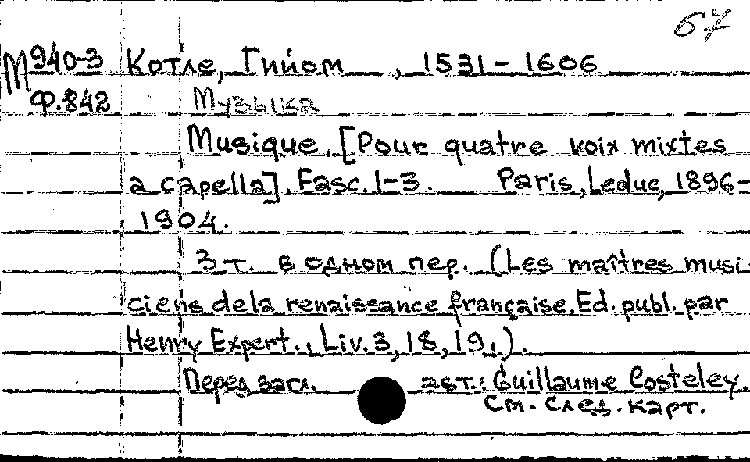 67
М 940-3 Котле, Гийом, 1531-1606
Ф.842 Музыка
Musique. [Pour quatre voix mixtes
a capella]. Fasc. 1-3. Paris, Leduc, 1896-
1904.
3 т. в одном пер. (Les maîtres musi-
ciens de la renaissance française. Ed. publ. par
Henry Expert., Liv. 3, 18, 19.).
Перед загл. авт.: Guillaume Costeley.
См. след. карт.